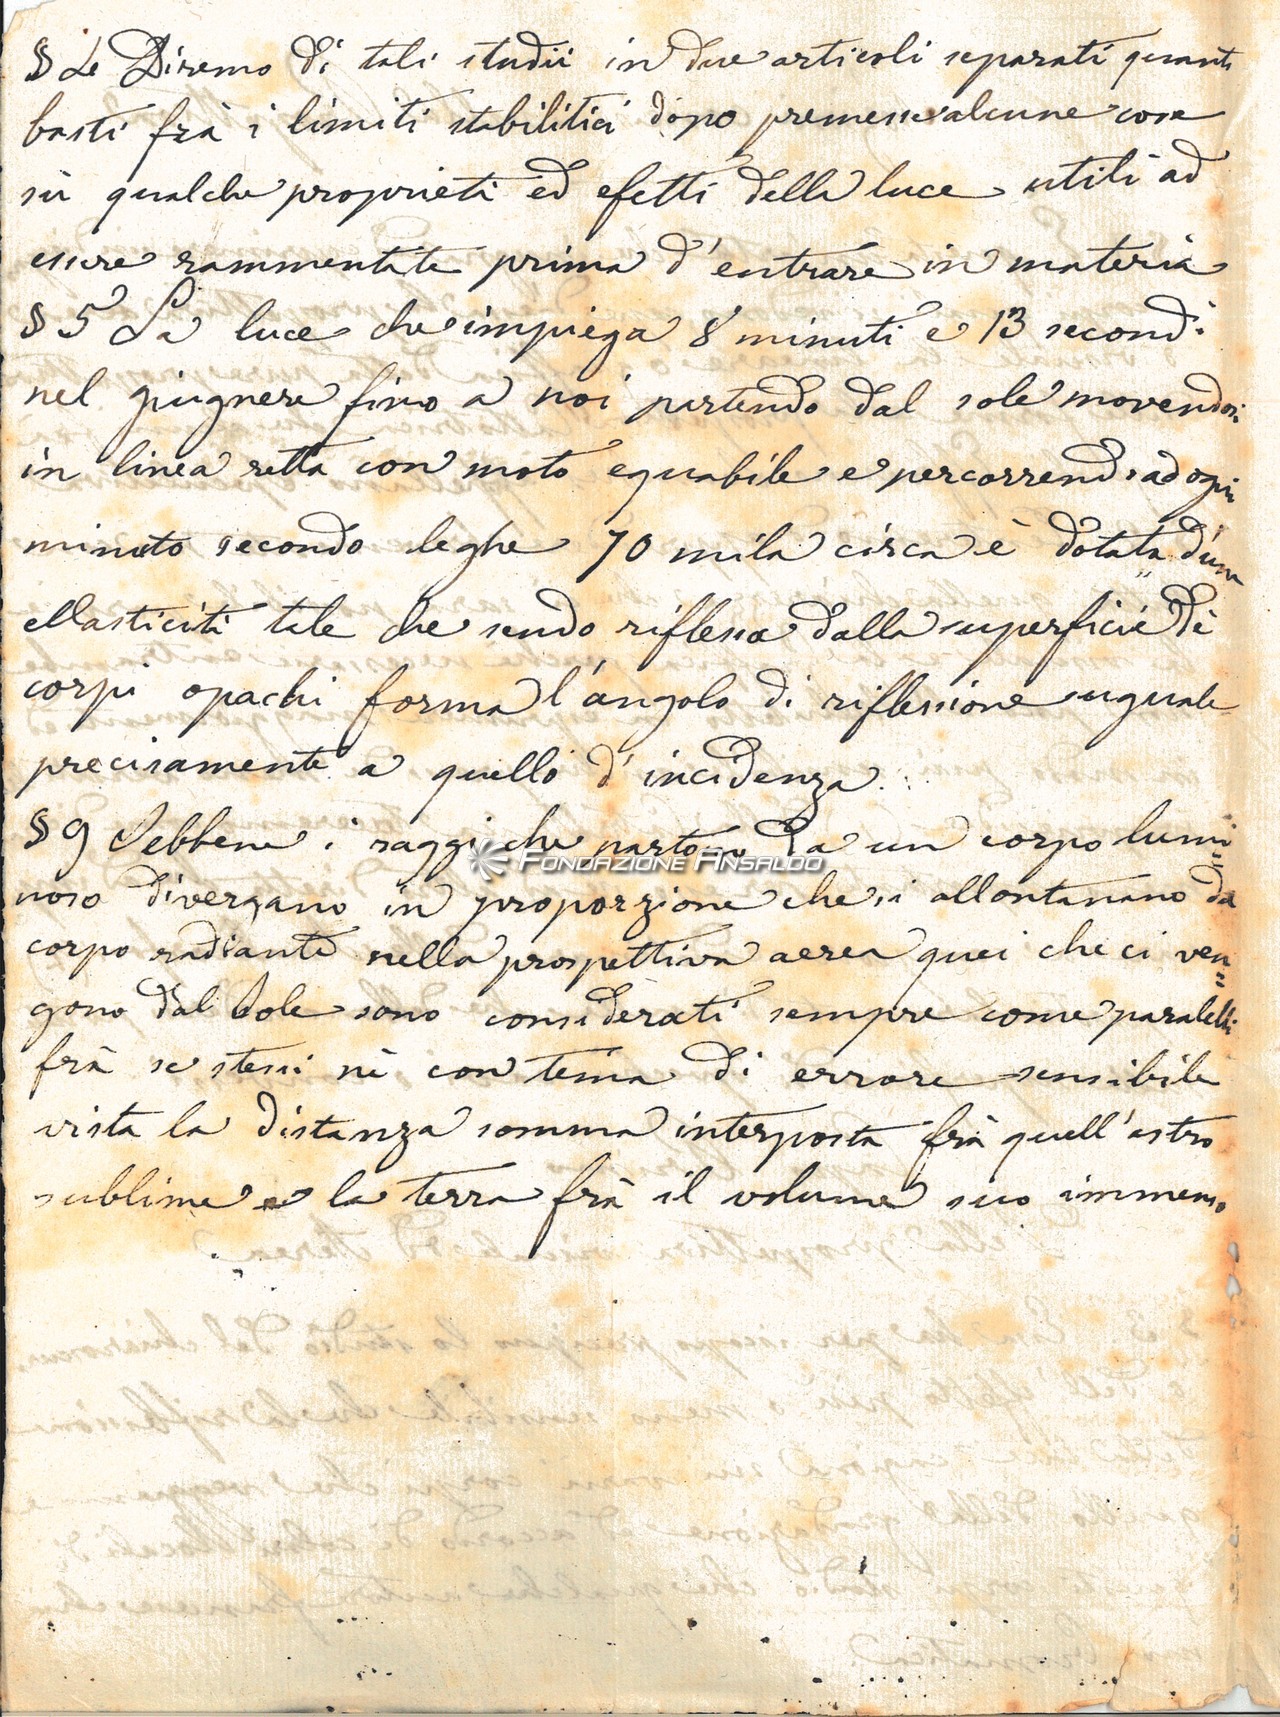 § 4 Diremo di tali studii in due articoli separati quanti
basti frà i limiti stabilitici dopo premesse alcune cose
sù qualche proprietà ed efetti della luce utili ad
essere rammentate prima d'entrare in materia
§ 5 La luce che impiega 8 minuti e 13 secondi
nel giugnere fino a noi partendo dal sole movendosi
in linea retta con moto equabile e percorrendo ad ogni
minuto secondo leghe 70 mila circa è dotata d'una
ellasticità tale che sendo riflessa dalla superficie di
corpi opachi forma l'angolo di riflessione uguale
precisamente a quello d'incidenza.
§ 9 Sebbene i raggi che partono da un corpo lumi=
noso divergano in proporzione che si allontanano da
corpo radiante nella prospettiva aerea quei che ci ven=
gono dal Sole sono considerati sempre come paralelli
frà se stessi nè con tema di errore sensibile
vista la distanza somma interposta frà quell'astro
sublime e la terra frà il volume suo immenso
Fondazione Ansaldo